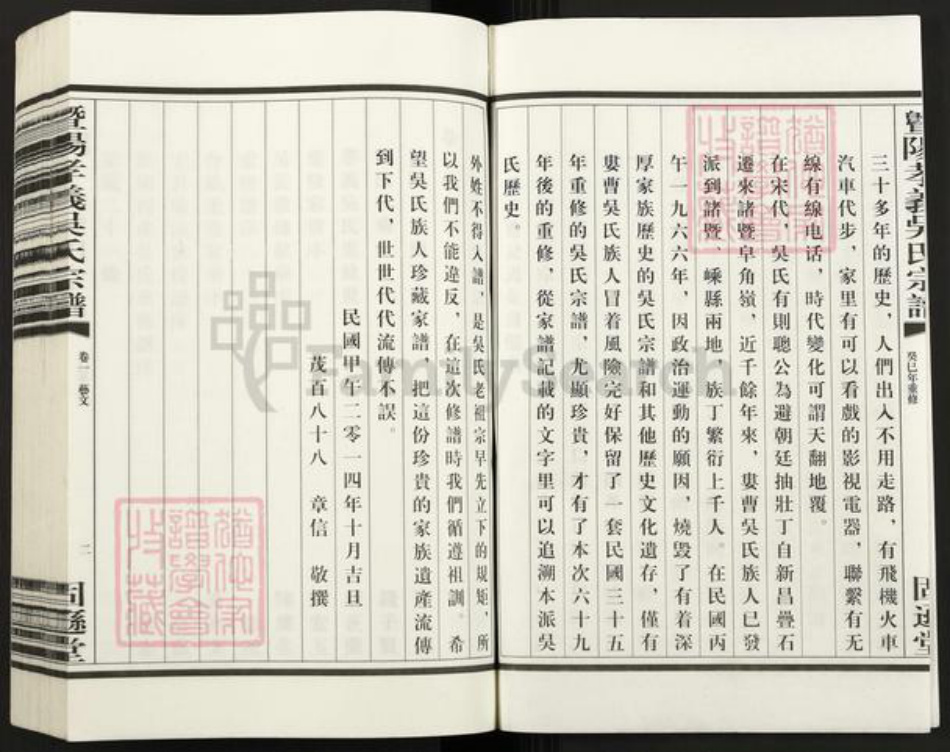 暨陽孝義吳氏宗譜
癸巳年重修
固遜堂
三十多年的歷史，人們出入不用走路，有飛機火車
汽車代步，家里有可以看戲的影視電器，聯繫有无
線有線电话，時代變化可謂天翻地覆。
在宋代，吳氏有則聰公為避朝廷抽壯丁自新昌疊石
遷來諸暨阜角嶺，近千餘年來，婁曹吳氏族人已發
派到諸暨、嵊縣兩地，族丁繁衍上千人。在民國丙
午一九六六年，因政治運動的願因，燒毀了有着深
厚家族歷史的吳氏宗譜和其他歷史文化遺存，僅有
婁曹吳氏族人冒着風險完好保留了一套民國三十五
年重修的吳氏宗譜，尤顯珍貴，才有了本次六十九
年後的重修，從家譜記載的文字里可以追溯本派吳
氏歷史。
外姓不得入譜，是吳氏老祖宗早先立下的規矩，所
以我們不能違反，在這次修譜時我們循遵祖訓。希
望吳氏族人珍藏家譜，把這份珍貴的家族遺產流傳
到下代，世世代代流傳不誤。
民國甲午二零一四年十月吉旦
茂百八十八　章信　敬撰
暨陽孝義吳氏宗譜
卷一 藝文
二
固遜堂
FamilySearch